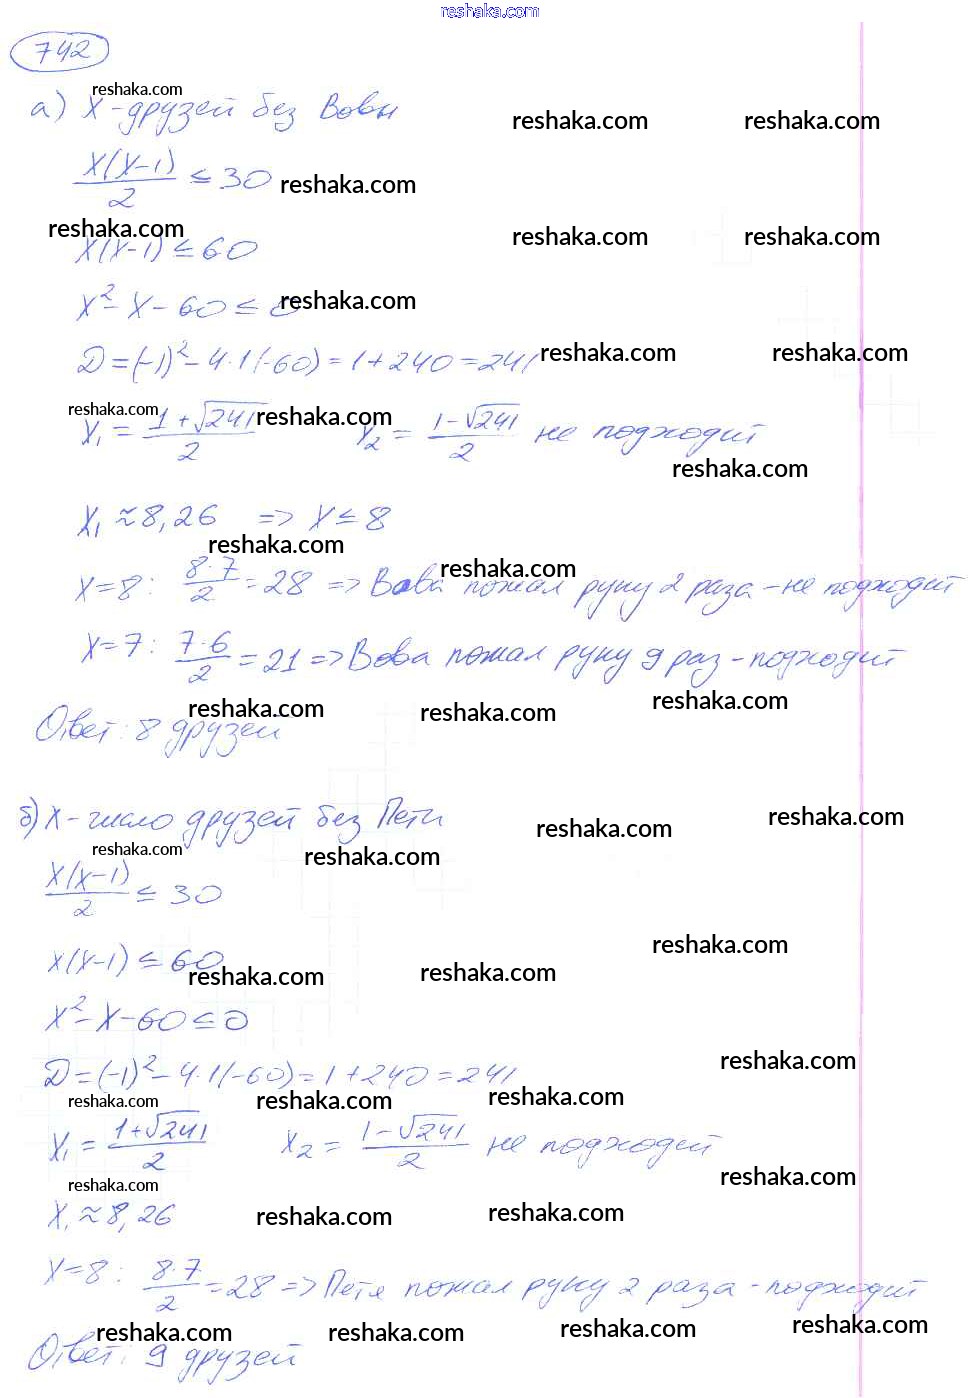 reshaka.com
742
reshaka.com
а) X - друзей без Вовы
reshaka.com reshaka.com
X(X-1)/2 ≤ 30 reshaka.com
reshaka.com
X(X-1) ≤ 60 reshaka.com reshaka.com
X² - X - 60 ≤ 0 reshaka.com
Д = (-1)² - 4·1(-60) = 1 + 240 = 241 reshaka.com reshaka.com
reshaka.com reshaka.com
X₁ = (1 + √241)/2 X₂ = (1 - √241)/2 не подходит
reshaka.com
X₁ ≈ 8,26 => X ≤ 8
reshaka.com reshaka.com
X = 8 : 8·7/2 = 28 => Вова пожал руку 2 раза - не подходит
X = 7 : 7·6/2 = 21 => Вова пожал руку 9 раз - подходит
reshaka.com reshaka.com reshaka.com
Ответ: 8 друзей
б) X - число друзей без Пети reshaka.com reshaka.com
reshaka.com reshaka.com
X(X-1)/2 ≤ 30
reshaka.com
X(X-1) ≤ 60
reshaka.com reshaka.com
X² - X - 60 ≤ 0
reshaka.com
Д = (-1)² - 4·1(-60) = 1 + 240 = 241
reshaka.com reshaka.com reshaka.com
X₁ = (1 + √241)/2 X₂ = (1 - √241)/2 не подходит
reshaka.com reshaka.com
X₁ ≈ 8,26 reshaka.com reshaka.com
X = 8 : 8·7/2 = 28 => Петя пожал руку 2 раза - подходит
reshaka.com reshaka.com reshaka.com reshaka.com
Ответ: 9 друзей